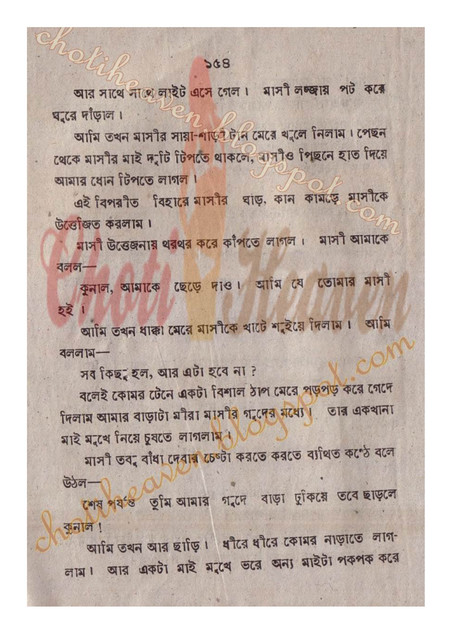 chotiheaven.blogspot.com
১৫৪
আর সাথে সাথে লাইট এসে গেল। মাসী লজ্জায় পট করে
ঘুরে দাঁড়াল।
আমি তখন মাসীর সায়া-শাড়ী টান মেরে খুলে নিলাম। পেছন
থেকে মাসীর মাই দুটি টিপতে থাকলে, মাসীও পিছনে হাত দিয়ে
আমার ধোন টিপতে লাগল।
এই বিপরীত বিহারে মাসীর ঘাড়, কান কামড়ে মাসীকে
উত্তেজিত করলাম।
মাসী উত্তেজনায় থরথর করে কাঁপতে লাগল। মাসী আমাকে
বলল—
কুনাল, আমাকে ছেড়ে দাও। আমি যে তোমার মাসী
হই।
Choti Heaven
আমি তখন ধাক্কা মেরে মাসীকে খাটে শুইয়ে দিলাম। আমি
বললাম—
সব কিছু হল, আর এটা হবে না?
বলেই কোমর টেনে একটা বিশাল ঠাপ মেরে পড়পড় করে গেদে
দিলাম আমার বাড়াটা মীরা মাসীর গুদের মধ্যে। তার একখানা
মাই মুখে নিয়ে চুষতে লাগলাম।
মাসী তবু বাঁধা দেবার চেষ্টা করতে করতে ব্যথিত কণ্ঠে বলে
উঠল—
শেষ পর্যন্ত তুমি আমার গুদে বাড়া ঢুকিয়ে তবে ছাড়লে
কুনাল!
আমি তখন আর ছাড়ি। ধীরে ধীরে কোমর নাড়াতে লাগ-
লাম। আর একটা মাই মুখে ভরে অন্য মাইটা পকপক করে
chotiheaven.blogspot.com